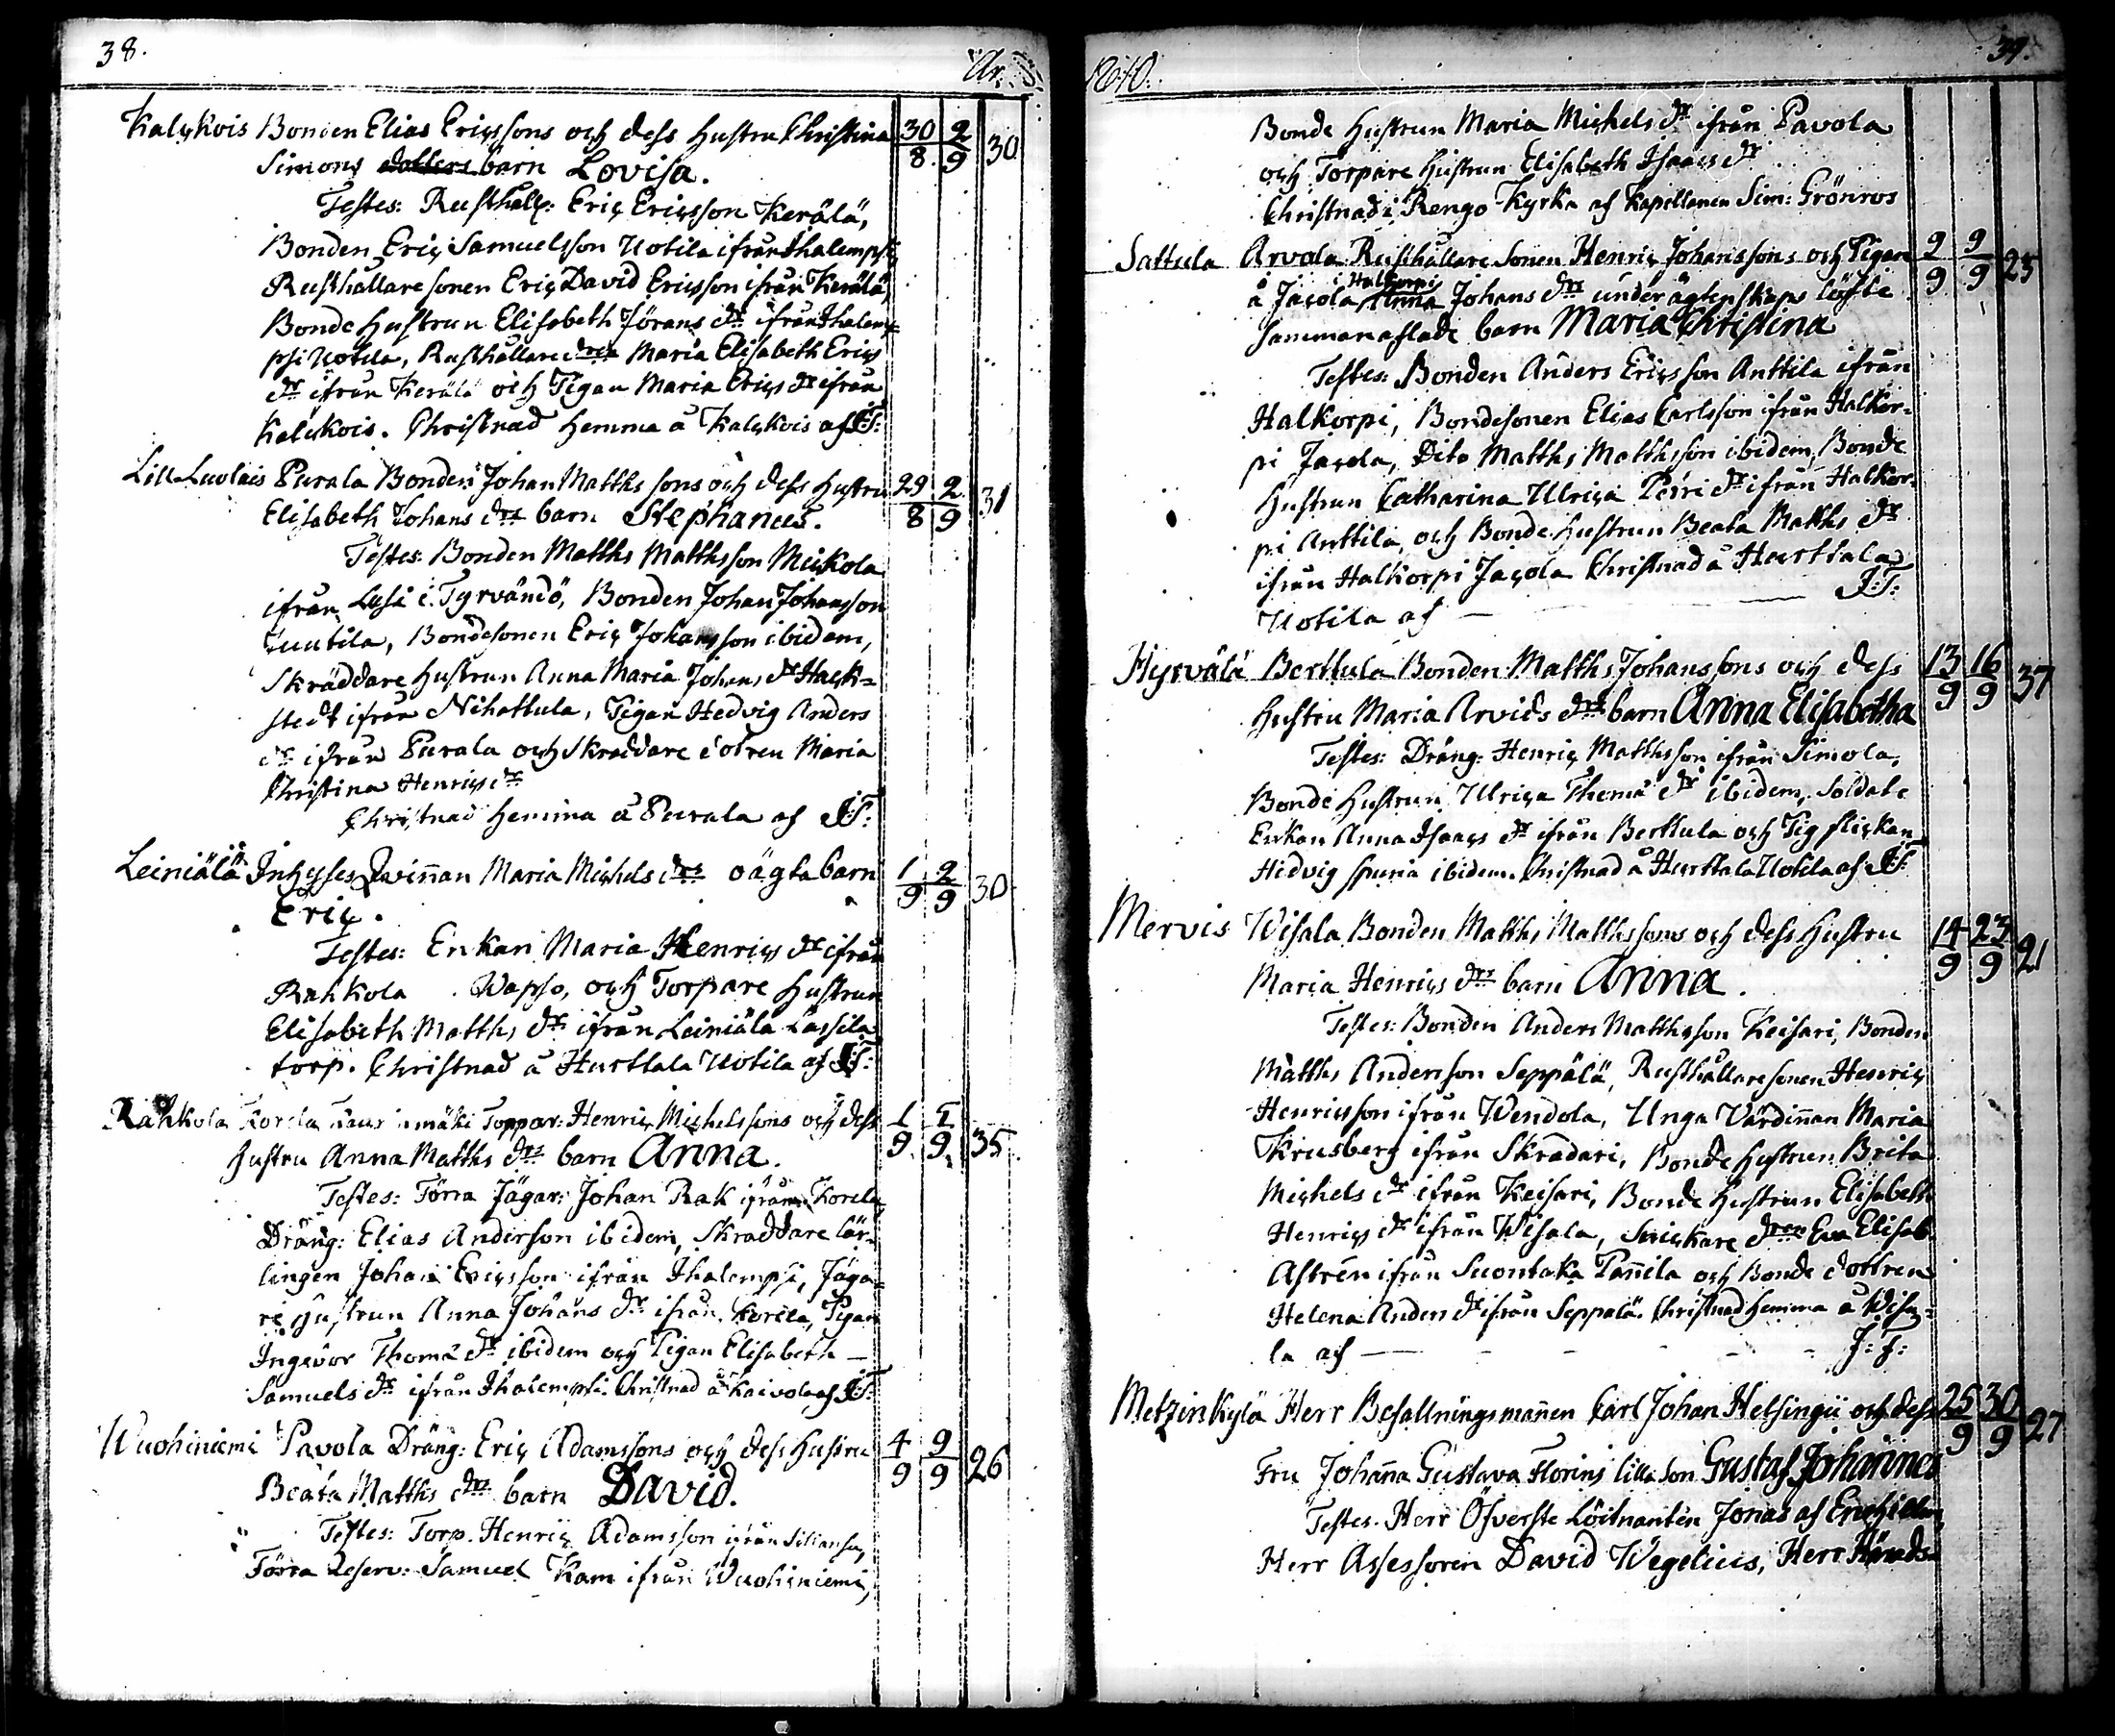 38.
År
Kalykvis Bonden Elias Ericssons och dess hustru Christina 30/8 2/9 30
Simons barn Lovisa.
Testes: Rusthåll: Eric Ericsson Kerälä,
Bonden Eric Samuelsson Uotila ifrån Ihalempsi
Rusthållare sonen Eric David Ericsson ifrån Kerälä,
Bonde hustrun Elisabeth Jörans dr ifrån Ihalem-
psi Uotila, Rusthållare dren Maria Elisabeth Erics
dr ifrån Kerälä och Pigan Maria Erics dr ifrån
Kalykvis. Christnad hemma å Kalykvis af
Lill Luolais Purala Bonden Johan Matths sons och dess hustru 29/8 2/9 31
Elisabeth Johans drs barn Stephanus.
Testes: Bonden Matths Matthsson Mickola
ifrån i Tyrvändö, Bonden Johan Johansson
Bondesonen Eric Johansson ibidem,
Skräddare hustrun Anna Maria Johans dr Hack-
stedt ifrån Nihattula, Pigan Hedvig Anders
dr ifrån Purala och Skräddare dotren Maria
Christina Henrics dr
Christnad hemma å Purala af
Leiniälä Inhyses Qvinnan Maria Michels drs oägta barn 1/9 2/9 30
Eric.
Testes: Enkan Maria Henrics dr ifrån
Rahkola Wapso, och Torpare hustrun
Elisabeth Matths dr ifrån Leiniälä Lassila
torp. Christnad å Hurttala Uotila af
Rahkola Torpar: Henric Michelssons och dess 1/9 35
hustru Anna Matths drs barn Anna.
Testes: Förra Jägar: Johan Rak ifrån Korela,
Dräng: Elias Anderson ibidem, Skräddare lär-
lingen Johan Ericsson ifrån Ihalempsi, Jäga-
re hustrun Anna Johans dr ifrån Korela, Pigan
Ingevor Thomæ dr ibidem och Pigan Elisabeth
Samuels dr ifrån Ihalempsi. Christnad å Kaivola af
Wuohiniemi Pavola Dräng: Eric Adamssons och dess hustru 4/9 9/9 26
Beata Matths drs barn David.
Testes: Torp. Henric Adamsson ifrån
Förra Reserv: Samuel Kam ifrån Wuohiniemi,
1810.
39.
Bonde hustrun Maria Michels dr ifrån Pavola
och Torpare hustrun Elisabeth Isaacs dr
Christnad i Rengo Kyrka af Kapellanen Sim: Grönros
Sattula Arvola Rusthållare sonen Henric Johanssons och Pigan 9/9 9/9 25
i Halkorpi
å Jacola Anna Johans drs under ägtenskaps löfte
sammanaflade barn Maria Christina
Testes: Bonden Anders Ericsson Anttila ifrån
Halkorpi, Bondesonen Elias Carlsson ifrån Halkor-
pi Jacola, Dito Matths Matthsson ibidem, Bonde
hustrun Catharina Ulrica Petri dr ifrån Halkor-
pi Anttila, och Bonde hustrun Beata Matths dr
ifrån Halkorpi Jacola Christnad å Hurttala
Uotila af
Hyrvälä Berttula Bonden Matths Johanssons och dess 13/9 16/9 37
hustru Maria Arvids drs barn Anna Elisabetha
Testes: Dräng: Henric Matthsson ifrån Simola,
Bonde hustrun Ulrica Thomæ dr ibidem, Soldate
Enkan Anna Isaacs dr ifrån Berttula och Pig flickan
Hedvig spuria ibidem. Christnad å Hurttala Uotila af
Mervis Wisala Bonden Matths Matthssons och dess hustru 14/9 23/9 21
Maria Henrics drs barn Anna.
Testes: Bonden Anders Matthsson Keisari, Bonden
Matths Andersson Seppälä, Rusthållare sonen Henric
Henricsson ifrån Wendola, Unga Värdinnan Maria
Krusberg ifrån Skradari, Bonde hustrun Brita
Michels dr ifrån Keisari, Bonde hustrun Elisabeth
Henrics dr ifrån Wisala, Snickare dren Eva Elisab.
Astrén ifrån Suontaka Pannila och Bonde dottren
Helena Anders dr ifrån Seppälä. Christnad hemma å Wisa-
la af
Metzinkylä Herr Befallningsmannen Carl Johan Helsingii och dess 25/9 30/9 27
Fru Johanna Gustava Florins lilla Son Gustaf Johannes
Testes. Herr Öfverste Löitnanten Jonas af
Herr Assessoren David Wegelius, Herr Härads-